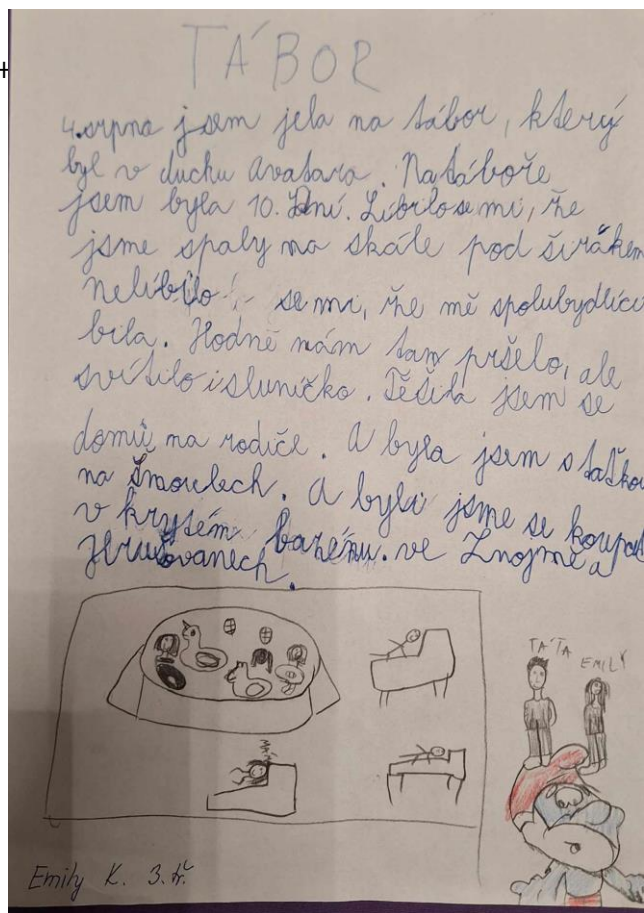 TÁBOR
4. srpna jsem jela na tábor, který
byl v duchu Avatara. Na táboře
jsem byla 10. Dní. Líbilo se mi, že
jsme spaly na skále pod širákem
Nelíbilo se mi, že mě spolubydlící
bila. Hodně nám tam pršelo, ale
svítilo i sluníčko. Těšila jsem se
domů na rodiče. A byla jsem s taťkou
na Šmoulech. A byli jsme se koupat
v krytém bazénu. ve Znojmě a
Hrušovanech.
TÁTA
EMILY
Emily K. 3. tř.